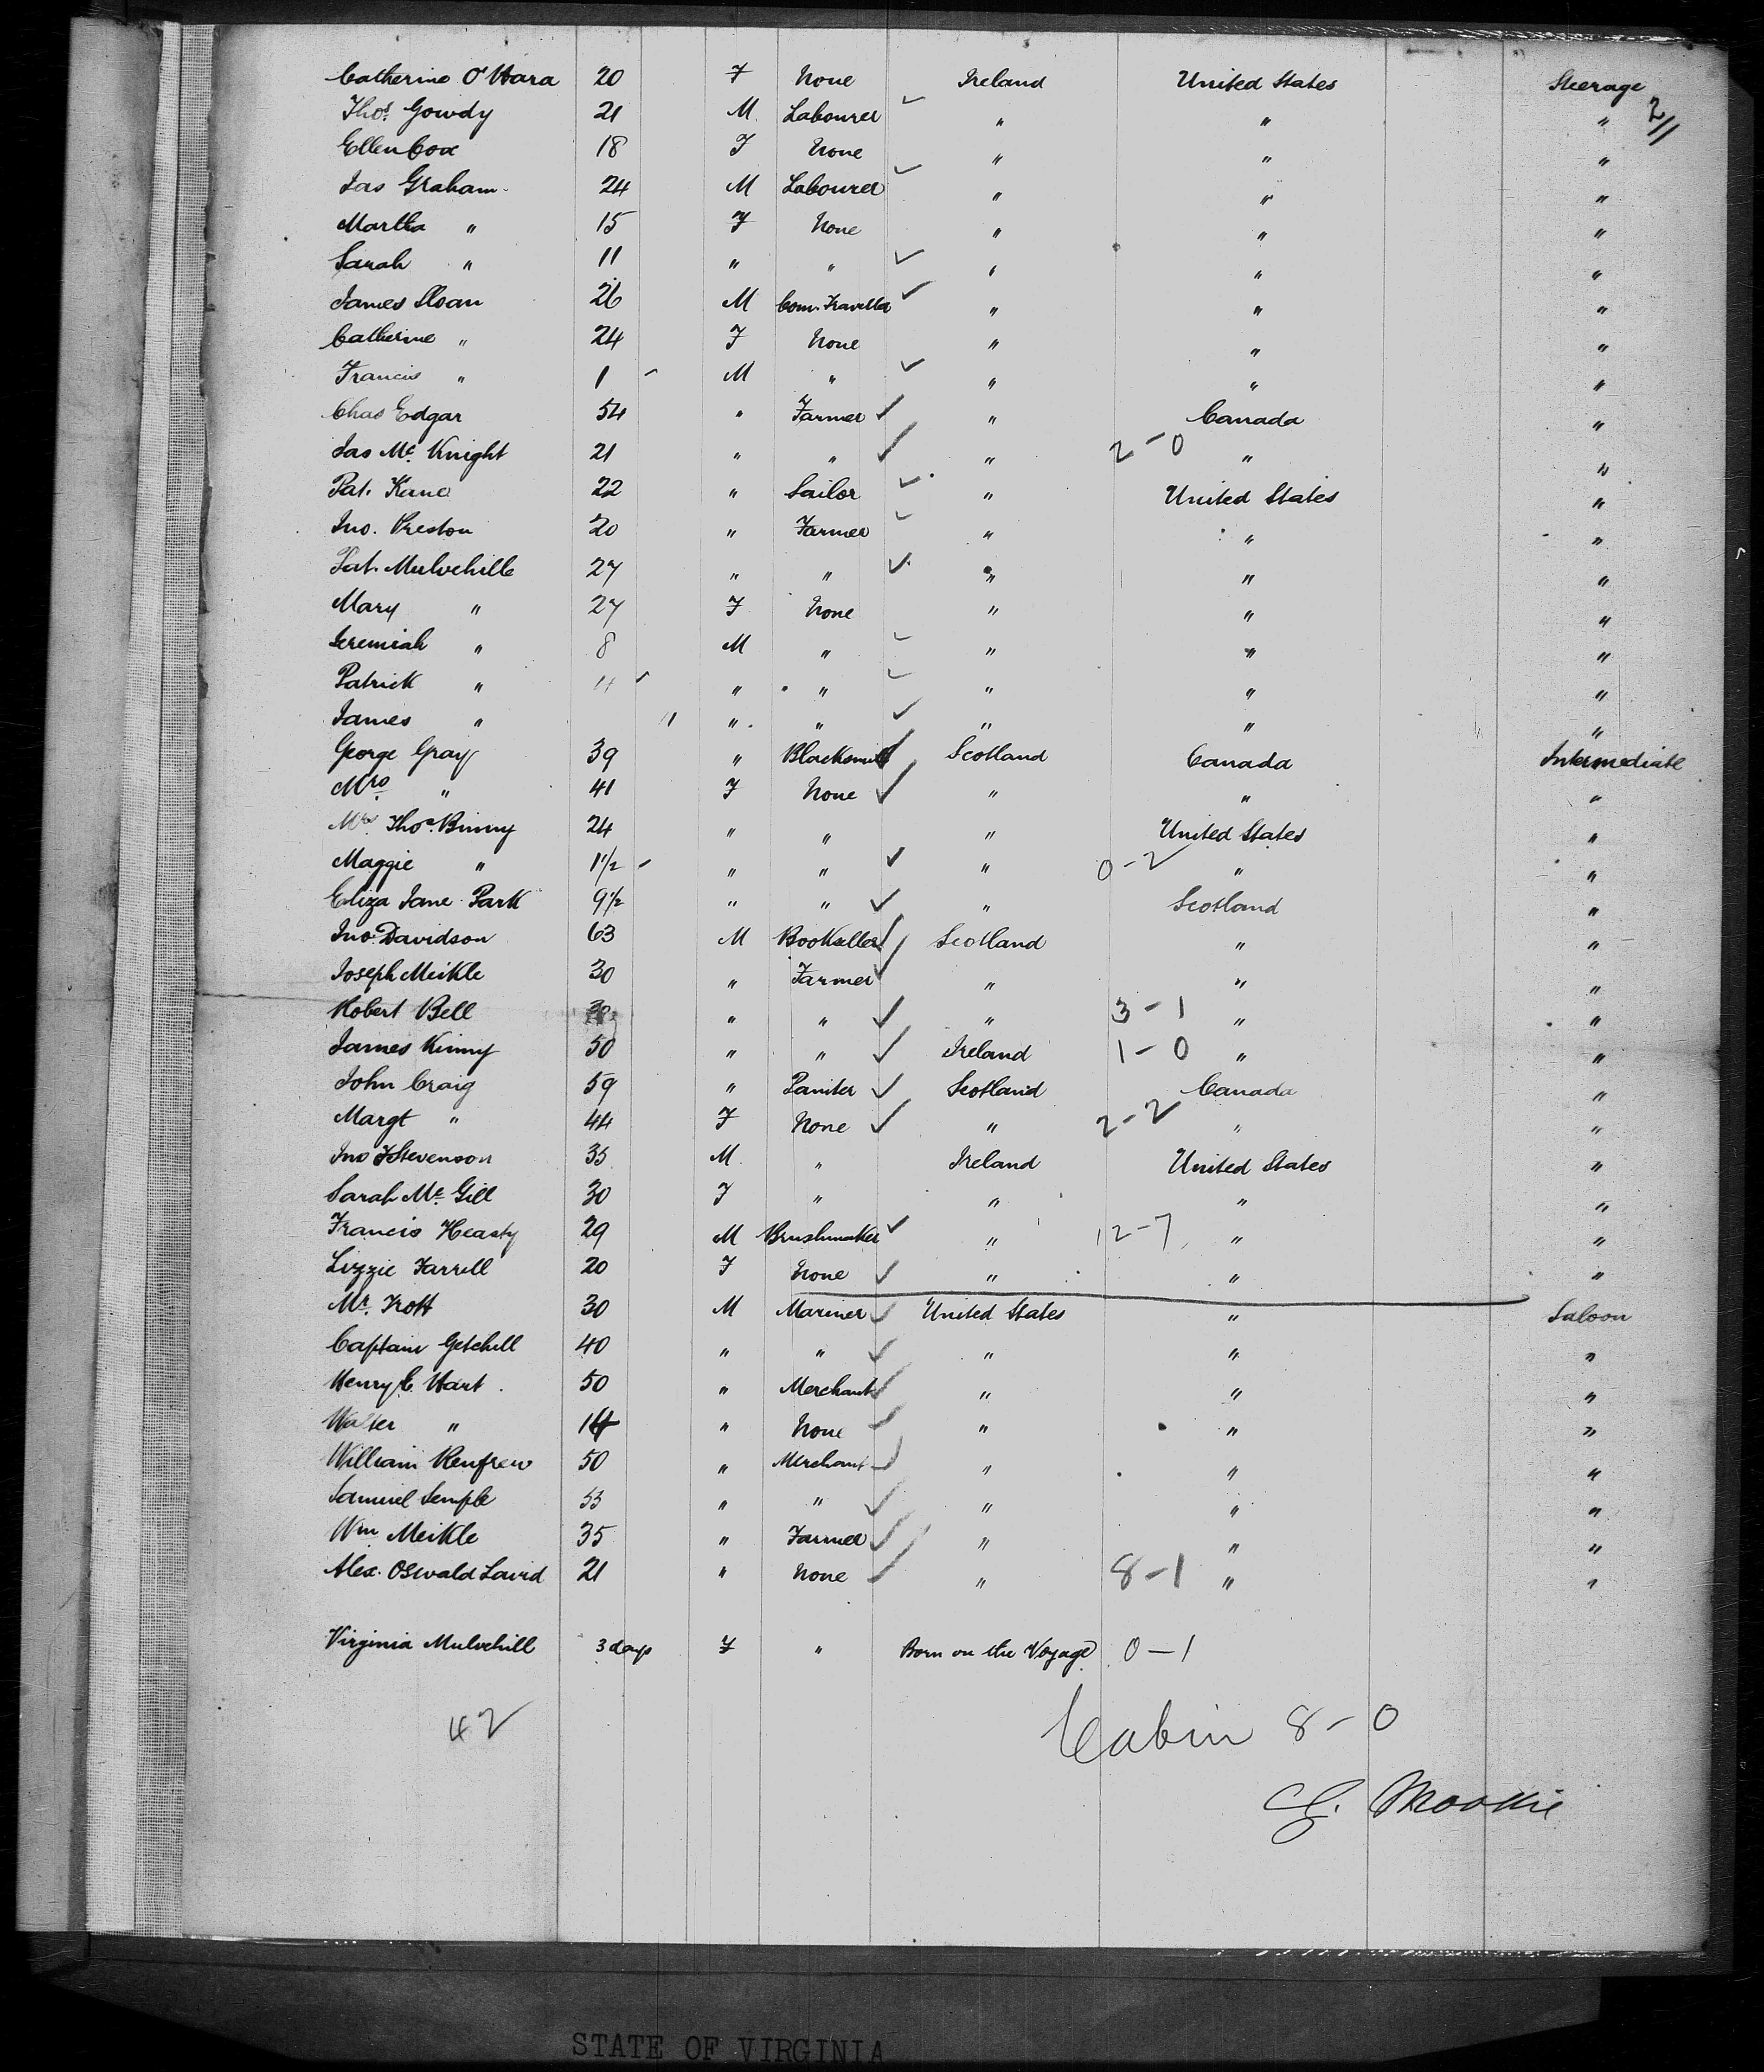 Catherine O'Hara 20 F None Ireland United States Steerage
Thos. Gowdy 21 M. Labourer " " " 2/1
Ellen Cox 18 F None " " "
Jas Graham 24 M Labourer " " "
Martha " 15 F None " " "
Sarah " 11 " " " " "
James Sloan 26 M Com. Traveller " " "
Catherine " 24 F None " " "
Francis " 1 M " " " "
Chas Edgar 54 " Farmer " Canada "
Jas Mc. Knight 21 " " " 2-0 " "
Pat. Kane 22 " Sailor " United States "
Jno. Preston 20 " Farmer " " "
Pat. Mulvehille 27 " " " " "
Mary " 27 F None " " "
Jeremiah " 8 M " " " "
Patrick " 4 " " " " "
James " 11 " " " " "
George Gray 39 " Blacksmith Scotland Canada Intermediate
Mrs " 41 F None " " "
Mrs. Thos. Binny 24 " " " United States "
Maggie " 1 1/2 " " " 0-2 " "
Eliza Jane Park 9 1/2 " " " Scotland "
Jno. Davidson 63 M Bookseller Scotland " "
Joseph Meikle 30 " Farmer " " "
Robert Bell " " " 3-1 " "
James Kinny 50 " " Ireland 1-0 " "
John Craig 59 " Paniter Scotland Canada "
Margt " 44 F None " 2-2 " "
Jno Stevenson 35 M. " Ireland United States "
Sarah Mc. Gill 30 F " " " "
Francis Heasty 29 M Brushmaker " 12-7 " "
Lizzie Farrell 20 F None " " "
Mr. Trott 30 M Mariner United States " Saloon
Captain Getchell 40 " " " " "
Henry C. Hart. 50 " Merchant " " "
Walter " 14 " None " " "
William Renfrew 50 " Merchant " " "
Samuel Semple 53 " " " " "
Wm Meikle 35 " Farmer " " "
Alex. Oswald Lavid 21 " None " 8-1 " "
Virginia Mulvehill 3 days F " Born on the Voyage 0-1
42 Cabin 8-0
STATE OF VIRGINIA